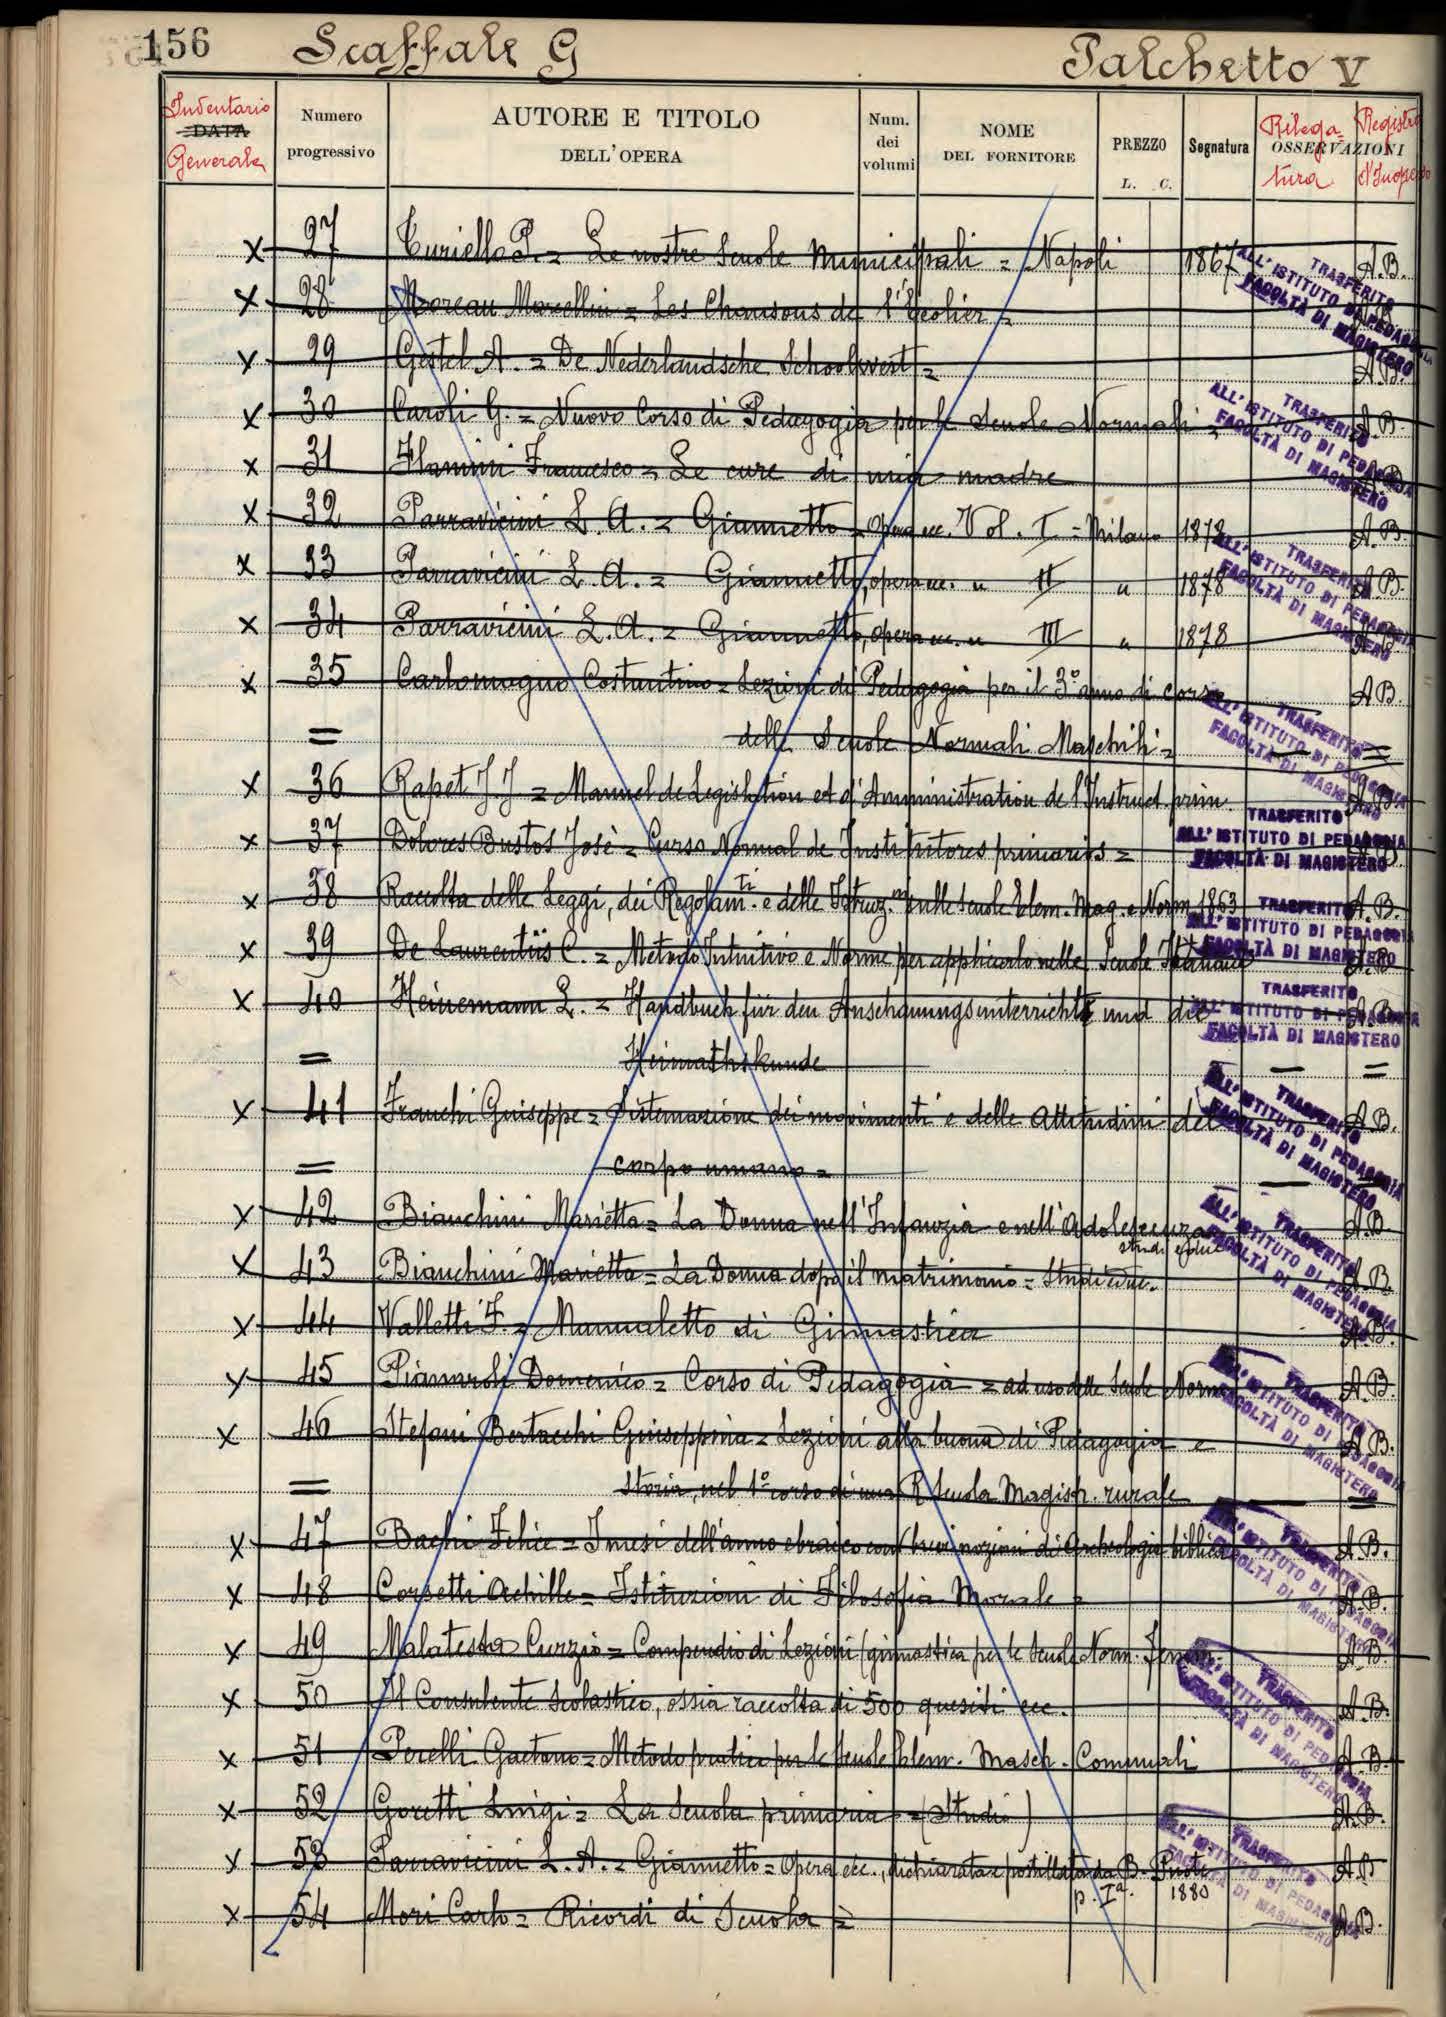 156 Scaffale G Palchetto V
Inventario DATA Generale
Numero progressivo
AUTORE E TITOLO DELL'OPERA
Num. dei volumi
NOME DEL FORNITORE
PREZZO L. C.
Segnatura
Rilegatura OSSERVAZIONI Registro
x 27 Turiello P. = Le nostre Scuole Municipali = Napoli 1867 A.B.
x 28 Moreau Marcellin = Les Chansons de l'Ecolier =
x 29 Gestel A. = De Nederlandsche Schoolwest = A.B.
x 30 Caroli G. = Nuovo Corso di Pedagogia per le Scuole Normali = A.B.
x 31 Flamini Francesco = Le cure di mia madre A.B.
x 32 Parravicini L. A. = Giannetto = Opera ecc. Vol. I = Milano 1878 A.B.
x 33 Parravicini L. A. = Giannetto, opera ec. " II " 1878 A.B.
x 34 Parravicini L. A. = Giannetto, opera ec. " III " 1878 A.B.
x 35 Carlomagno Costantino = Lezioni di Pedagogia per il 3° anno di corso A.B.
= delle Scuole Normali Maschili = — =
x 36 Rapet J J = Manuel de Legislation et d'Amministration de l'Instruct. prim. A.B.
x 37 Dolores Bustos Josè = Curso Normal de Institutores primarios = A.B.
x 38 Raccolta delle Leggi, dei Regolam.ti e delle Istruz.ni sulle Scuole Elem. Mag. e Norm. 1863 A.B.
x 39 De Laurentiis C. = Metodo Intuitivo e Norme per applicarlo nelle Scuole Italiane A.B.
x 40 Heinemann L. = Handbuch für den Anschauungsunterricht und die A.B.
= Heimathskunde — =
x 41 Franchi Guiseppe = Sistemazione dei movimenti e delle attitudini del A.B.
= corpo umano = — =
x 42 Bianchini Marietta = La Donna nell'Infanzia e nell'Adolescenza A.B.
studi educ.
x 43 Bianchini Marietta = La Donna dopo il matrimonio = Studi educ. A.B.
x 44 Valletti F. = Manualetto di Ginnastica A.B.
x 45 Pianaroli Domenico = Corso di Pedagogia = ad uso delle Scuole Norm. A.B.
x 46 Stefani Bertacchi Giuseppina = Lezioni alla buona di Pedagogia e A.B.
= storia, nel 1° corso di una R. Scuola Magistr. rurale — =
x 47 Bachi Felice = I mesi dell'anno ebraico con brevi nozioni di Archeologia biblica A.B.
x 48 Corsetti Achille = Istituzioni di Filosofia Morale = A.B.
x 49 Malatesta Curzio = Compendio di Lezioni (ginnastica per le Scuole Norm. Femm. A.B.
x 50 Il Consulente Scolastico, ossia raccolta di 500 quesiti ecc. A.B.
x 51 Perelli Gaetano = Metodo pratico per le Scuole Elem. Masch. Comunali A.B.
x 52 Goretti Luigi = La Scuola primaria = (Studio) A.B.
x 53 Parravicini L. A. = Giannetto = Opera ecc., dichiarata e postillata da B. A.B.
p. Iª. 1880
x 54 Mori Carlo = Ricordi di Scuola = A.B.
TRASFERITO
ALL'ISTITUTO DI PEDAGOGIA
FACOLTÀ DI MAGISTERO